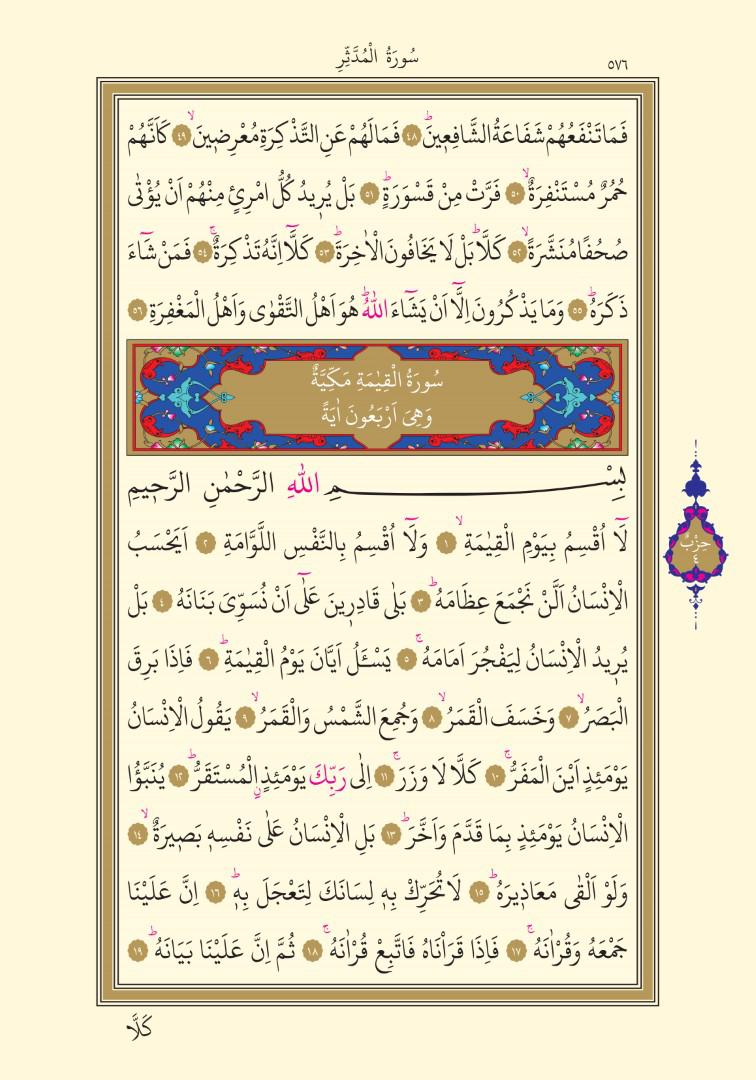 ٥٧٦
سُورَةُ الْمُدَّثِّرِ
فَمَا تَنْفَعُهُمْ شَفَاعَةُ الشَّافِعٖينَۜ ﴿٤٨﴾ فَمَا لَهُمْ عَنِ التَّذْكِرَةِ مُعْرِضٖينَۙ ﴿٤٩﴾ كَاَنَّهُمْ
حُمُرٌ مُسْتَنْفِرَةٌۙ ﴿٥٠﴾ فَرَّتْ مِنْ قَسْوَرَةٍۜ ﴿٥١﴾ بَلْ يُرٖيدُ كُلُّ امْرِئٍ مِنْهُمْ اَنْ يُؤْتٰى
صُحُفًا مُنَشَّرَةًۙ ﴿٥٢﴾ كَلَّاۜ بَلْ لَا يَخَافُونَ الْاٰخِرَةَۜ ﴿٥٣﴾ كَلَّٓا اِنَّهُ تَذْكِرَةٌۚ ﴿٥٤﴾ فَمَنْ شَٓاءَ
ذَكَرَهُۜ ﴿٥٥﴾ وَمَا يَذْكُرُونَ اِلَّٓا اَنْ يَشَٓاءَ اللّٰهُۜ هُوَ اَهْلُ التَّقْوٰى وَاَهْلُ الْمَغْفِرَةِ ﴿٥٦﴾
سُورَةُ الْقِيٰمَةِ مَكِّيَّةٌ
وَهِيَ اَرْبَعُونَ اٰيَةً
بِسْمِ اللّٰهِ الرَّحْمٰنِ الرَّحٖيمِ
لَٓا اُقْسِمُ بِيَوْمِ الْقِيٰمَةِۙ ﴿١﴾ وَلَٓا اُقْسِمُ بِالنَّفْسِ اللَّوَّامَةِ ﴿٢﴾ اَيَحْسَبُ
الْاِنْسَانُ اَلَّنْ نَجْمَعَ عِظَامَهُۜ ﴿٣﴾ بَلٰى قَادِرٖينَ عَلٰٓى اَنْ نُسَوِّيَ بَنَانَهُ ﴿٤﴾ بَلْ
يُرٖيدُ الْاِنْسَانُ لِيَفْجُرَ اَمَامَهُۚ ﴿٥﴾ يَسْـَٔلُ اَيَّانَ يَوْمُ الْقِيٰمَةِۜ ﴿٦﴾ فَاِذَا بَرِقَ
الْبَصَرُۙ ﴿٧﴾ وَخَسَفَ الْقَمَرُۙ ﴿٨﴾ وَجُمِعَ الشَّمْسُ وَالْقَمَرُۙ ﴿٩﴾ يَقُولُ الْاِنْسَانُ
يَوْمَئِذٍ اَيْنَ الْمَفَرُّۚ ﴿١٠﴾ كَلَّا لَا وَزَرَۚ ﴿١١﴾ اِلٰى رَبِّكَ يَوْمَئِذٍۨ الْمُسْتَقَرُّۜ ﴿١٢﴾ يُنَبَّؤُا
الْاِنْسَانُ يَوْمَئِذٍ بِمَا قَدَّمَ وَاَخَّرَۜ ﴿١٣﴾ بَلِ الْاِنْسَانُ عَلٰى نَفْسِهٖ بَصٖيرَةٌۙ ﴿١٤﴾
وَلَوْ اَلْقٰى مَعَاذٖيرَهُۜ ﴿١٥﴾ لَا تُحَرِّكْ بِهٖ لِسَانَكَ لِتَعْجَلَ بِهٖۜ ﴿١٦﴾ اِنَّ عَلَيْنَا
جَمْعَهُ وَقُرْاٰنَهُۚ ﴿١٧﴾ فَاِذَا قَرَاْنَاهُ فَاتَّبِعْ قُرْاٰنَهُۚ ﴿١٨﴾ ثُمَّ اِنَّ عَلَيْنَا بَيَانَهُۜ ﴿١٩﴾
حِزْبٌ
٤
كَلَّا